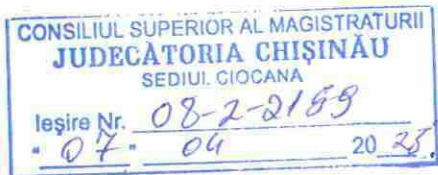 CONSILIUL SUPERIOR AL MAGISTRATURII
JUDECĂTORIA CHIȘINĂU
SEDIUL CIOCANA
Ieșire Nr. 08-2-2189
"07" 04 2025